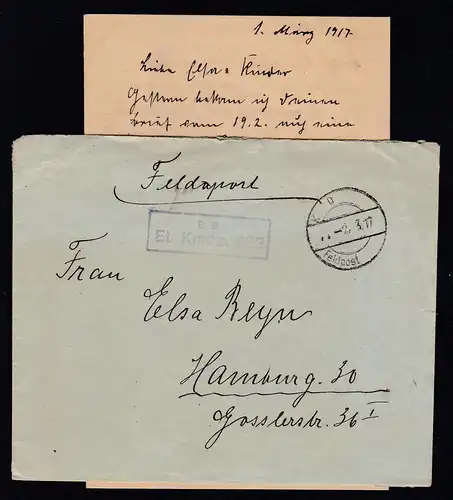 1. März 1917.
Liebe Elsa u Kinder
Gestern bekam ich Deinen
Brief vom 19.2. auf eine
Feldpost
2.3.17
Feldpost
Frau
Elsa Beyn
Hamburg. 30
Gosslerstr. 36 I